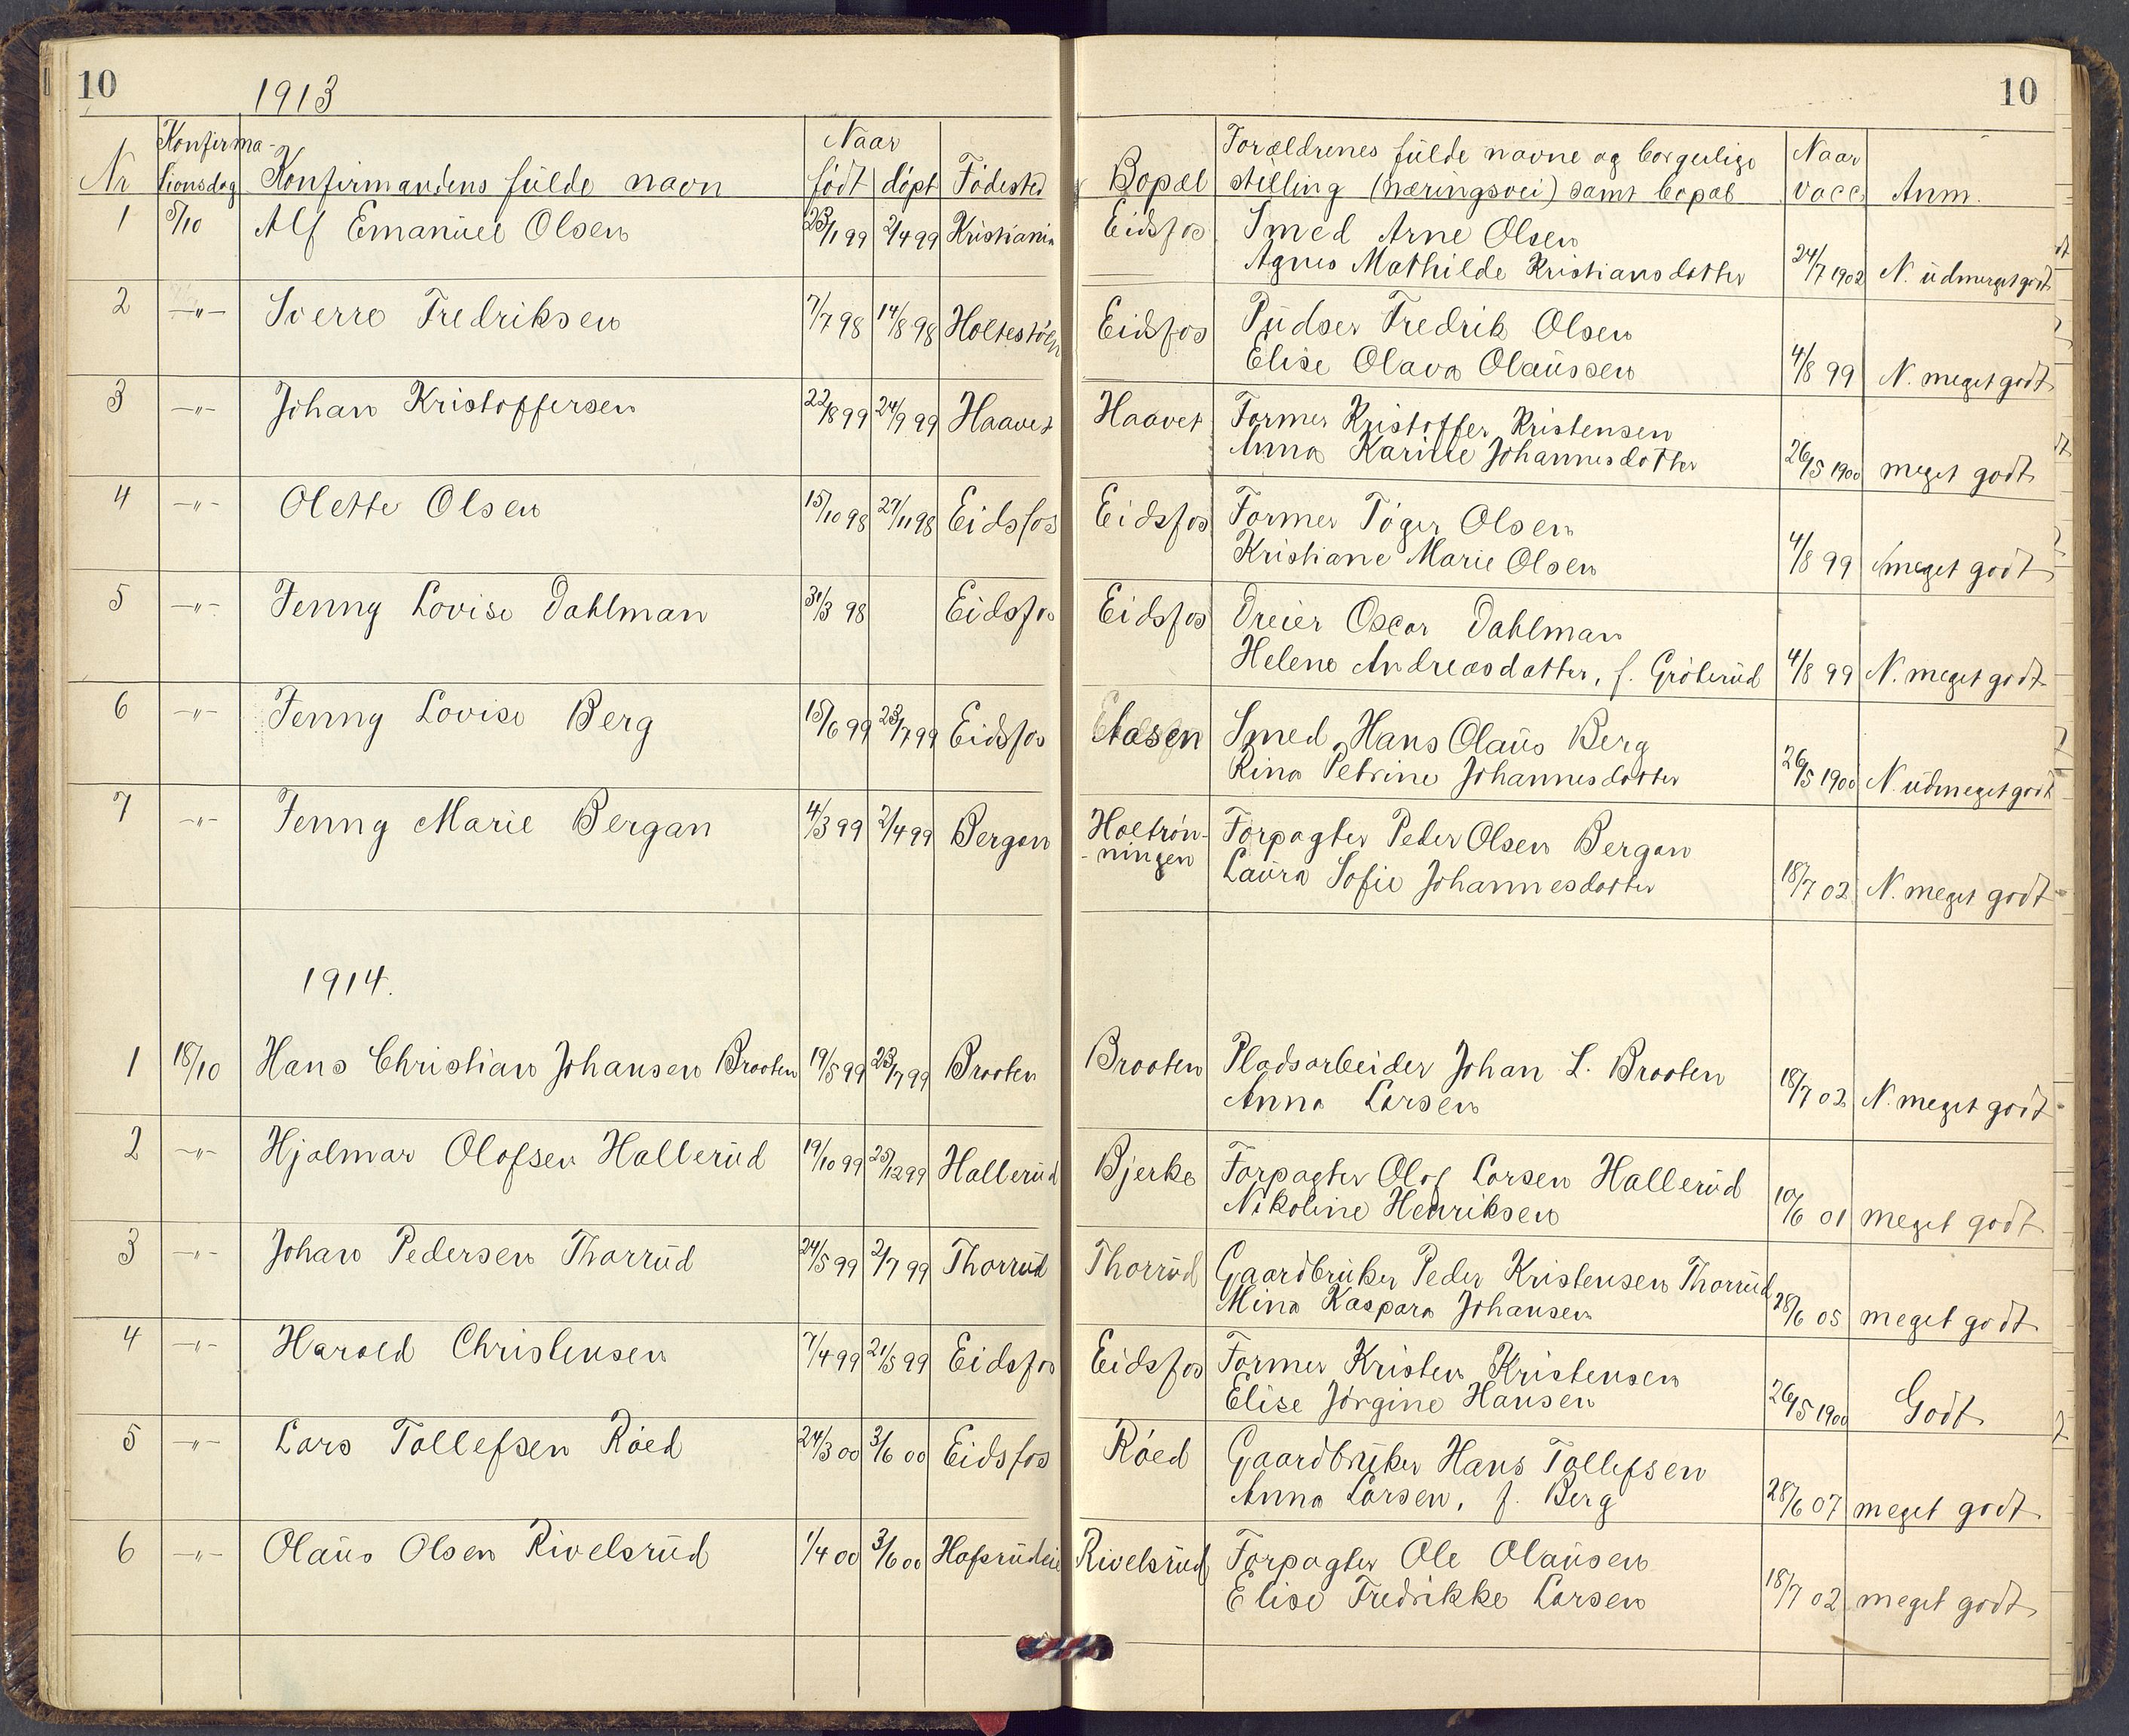 10
1913
10
Nr
Konfirma-
tionsdag
Konfirmandens fulde navn
Naar
født
døpt
Fødested
Bopæl
Forældrenes fulde navne og borgerlige
stilling (næringsvei) samt bopæl
Naar
vacc.
Anm.
1 5/10 Alf Emanuel Olsen 23/1 99 2/4 99 Kristiania Eidsfos Smed Arne Olsen
Agnes Mathilde Kristiansdatter 24/7 1902 N. udmerget godt
2 -"- Sverre Fredriksen 7/7 98 14/8 98 Eidsfos Pudser Fredrik Olsen
Elise Olava Olaussen 4/8 99 N. meget godt
3 -"- Johan Kristoffersen 22/8 99 24/9 99 Haavet Haavet Former Kristoffer Kristensen
Anna Karine Johannesdatter 26/5 1900 meget godt
4 -"- Olette Olsen 15/10 98 27/11 98 Eidsfos Eidsfos Former Tøger Olsen
Kristiane Marie Olsen 4/8 99 meget godt
5 -"- Jenny Lovise Dahlman 31/3 98 Eidsfos Eidsfos Dreier Oscar Dahlman
Helene Andreasdatter, f. Grøterud 4/8 99 N. meget godt
6 -"- Jenny Lovise Berg 15/6 99 23/7 99 Eidsfos Aasen Smed Hans Olaus Berg
Rina Petrine Johannesdatter 26/5 1900 N. udmeget godt
7 -"- Jenny Marie Bergan 4/3 99 2/4 99 Bergan Holtrøn-
-ningen Forpagter Peder Olsen Bergan
Laura Sofie Johannesdatter 18/7 02 N. meget godt
1914.
1 18/10 Hans Christian Johansen Braaten 19/5 99 23/7 99 Braaten Braaten Pladsarbeider Johan L. Braaten
Anna Larsen 18/7 02 N. meget godt
2 -"- Hjalmar Olafsen Hallerud 19/10 99 25/12 99 Hallerud Bjerke Forpagter Olaf Larsen Hallerud
Nikoline Henriksen 10/6 01 meget godt
3 -"- Johan Pedersen Thorrud 24/5 99 2/7 99 Thorrud Thorrud Gaardbruker Peder Kristensen Thorrud
Mina Kaspara Johansen 28/6 05 meget godt
4 -"- Harald Christensen 7/4 99 21/5 99 Eidsfos Eidsfos Former Kristen Kristensen
Elise Jørgine Hansen 26/5 1900 Godt
5 -"- Lars Tollefsen Røed 24/3 00 3/6 00 Eidsfos Røed Gaardbruker Hans Tollefsen
Anna Larsen, f. Berg 28/6 07 meget godt
6 -"- Olaus Olsen Rivelsrud 1/4 00 3/6 00 Hafsrudeie Rivelsrud Forpagter Ole Olausen
Elise Fredrikke Larsen 18/7 02 meget godt